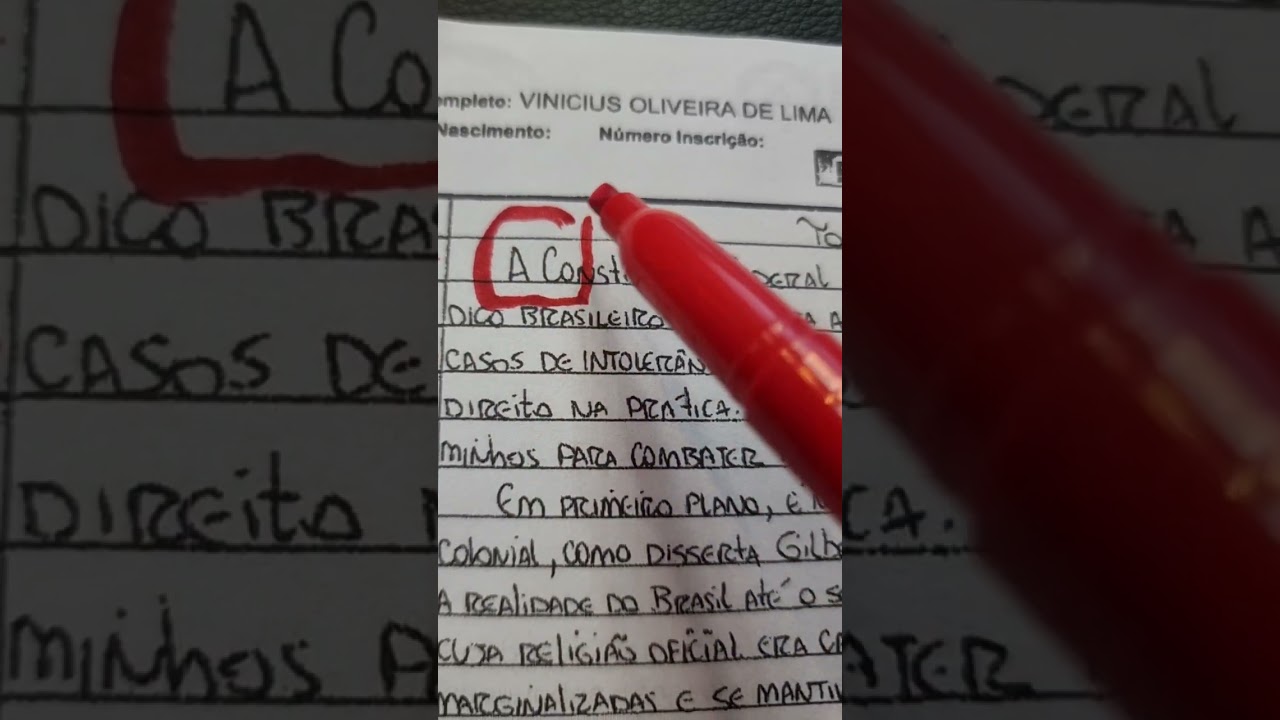 ompleto: VINICIUS OLIVEIRA DE LIMA
Nascimento: Número Inscrição:
A Const DERAL
DICO BRASILEIRO A A
CASOS DE INTOLERÂN
DIREITO NA PRÁTICA.
MINHOS PARA COMBATER
EM PRIMEIRO PLANO, É
COLONIAL, COMO DISSERTA Gilb
A REALIDADE DO BRASIL ATÉ O S
CUJA RELIGIÃO OFICIAL ERA CA
MARGINALIZADAS E SE MANTIV